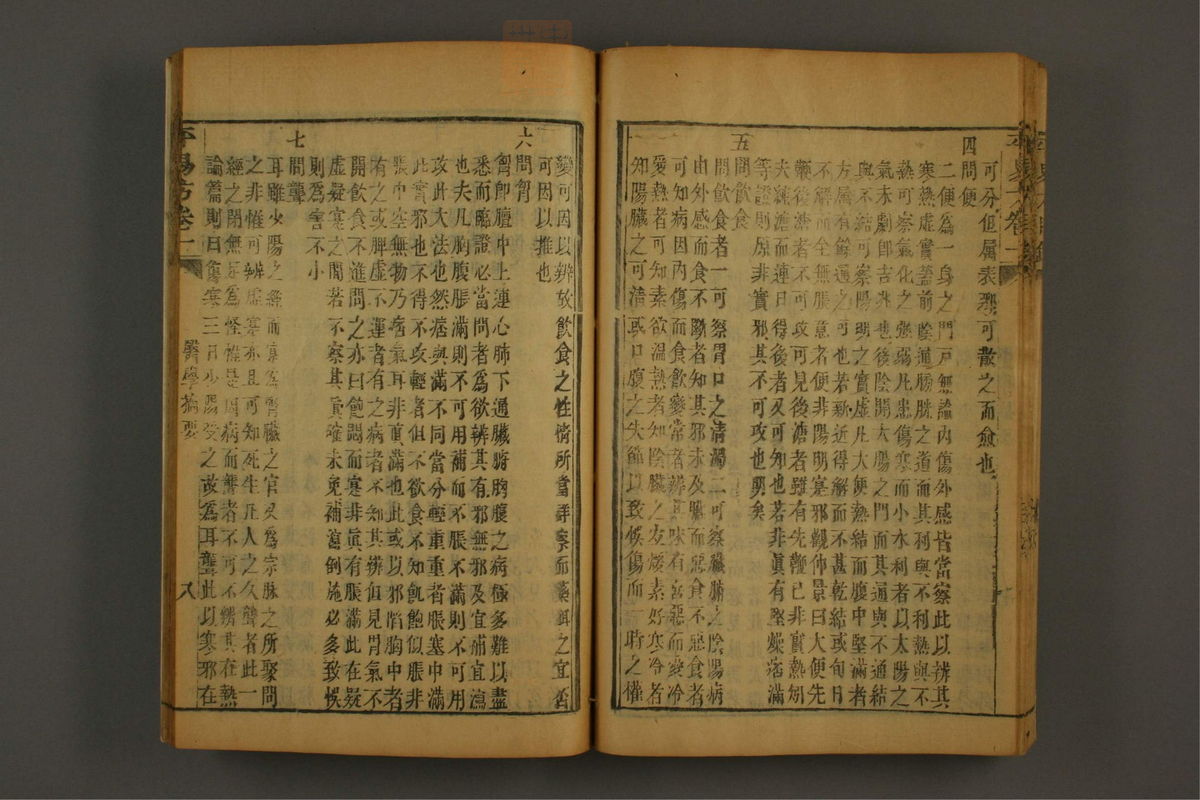 可分但屬表邪可散之而愈也
四問便
二便為一身之門戶無論內傷外感皆當察此以辨其
寒熱虛實蓋前陰通膀胱之道而其利與不利熱與不
熱可察氣化之強弱凡患傷寒而小水利者以太陽之
氣未劇即吉兆也後陰開大腸之門而其通與不通結
與不結可察陽明之實虛凡大便熱結而腹中堅滿者
方屬有餘通之可也若新近得解而不甚乾結或旬日
不解而全無脹意者便非陽明實邪觀仲景曰大便先
鞭後溏者不可攻可見後溏者雖有先鞭已非實熱矧
夫縴溏而連日得後者又可知也若非真有堅燥痞滿
等證則原非實邪其不可攻也明矣
五
問飲食
問飲食者一可察胃口之清濁二可察臟腑之陰陽病
由外感而食不斷者知其邪未及臟而惡食不惡食者
可知病因內傷而食飲變常者辨其味有喜惡而愛冷
愛熱者可知素欲溫熱者知陰臟之宜煖素好寒冷者
知陽臟之可清或口腹之失節以致候傷而一時之權
變可因以辨故飲食之性情所當詳察而藥餌之宜否
可因以推也
六
問胸
胸即膻中上連心肺下通臟腑胸腹之病極多難以盡
悉而臨證必當問者為欲辨其有邪無邪及宜補宜瀉
也夫凡胸腹脹滿則不可用補而不脹不滿則不可用
攻此大法也然痞與滿不同當分輕重重者脹塞中滿
此實邪也不得不攻輕者但不欲食不知飢飽似脹非
脹中空無物乃痞氣耳非真滿也此或以邪陷胸中者
有之或脾虛不運者有之病者不知其辨但見胃氣不
開飲食不進問之亦曰飽悶而實非真有脹滿此在疑
虛疑實之間若不察其真確未免補瀉倒施必多致悞
則為害不小
七
問聾
耳雖少陽之經而實為腎臟之官又為宗脉之所聚問
之非惟可辨虛實亦且可知死生凡人之久聾者此一
經之閉無足為怪惟是因病而聾者不可不辨其在熱
論篇則曰傷寒三日少陽受之故為耳聾此以寒邪在
平易方卷一
醫學摘要
八